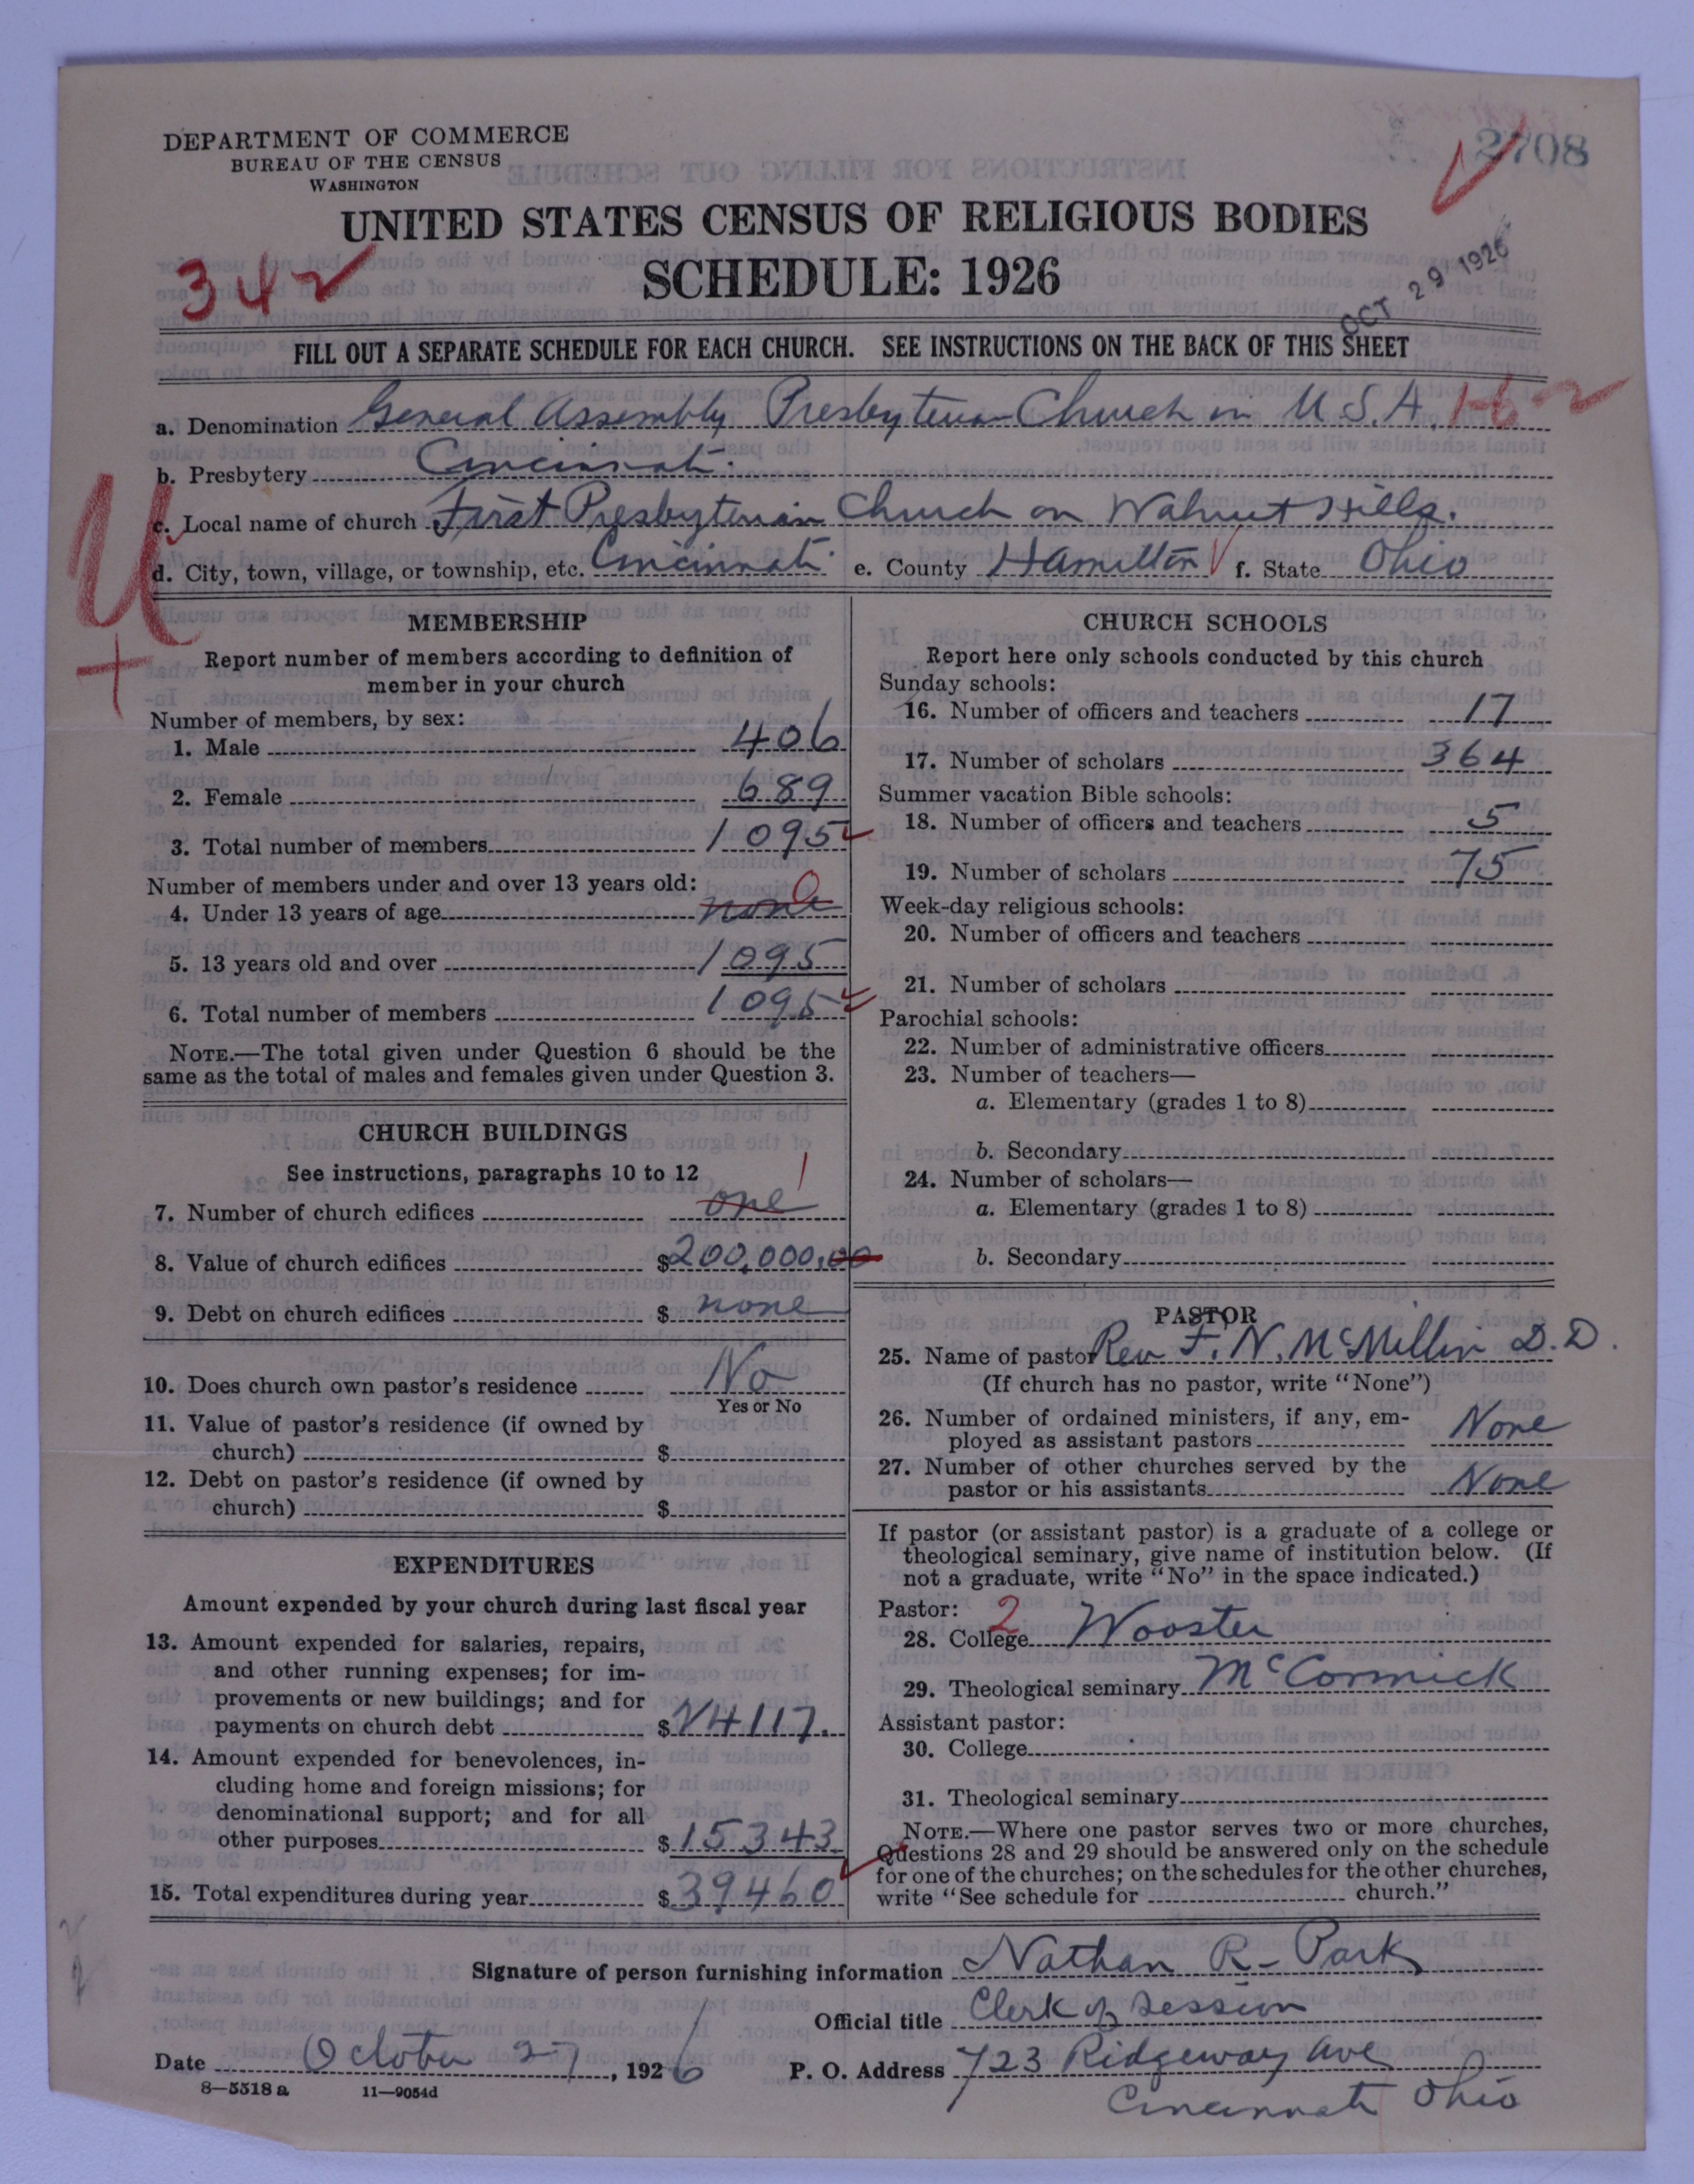 DEPARTMENT OF COMMERCE
BUREAU OF THE CENSUS
WASHINGTON
2708
UNITED STATES CENSUS OF RELIGIOUS BODIES
342
SCHEDULE: 1926
OCT 29 1926
FILL OUT A SEPARATE SCHEDULE FOR EACH CHURCH. SEE INSTRUCTIONS ON THE BACK OF THIS SHEET
a. Denomination General Assembly Presbyterian Church in U.S.A.
b. Presbytery Cincinnati.
c. Local name of church First Presbyterian Church on Walnut Hills.
d. City, town, village, or township, etc. Cincinnati e. County Hamilton f. State Ohio
MEMBERSHIP
Report number of members according to definition of
member in your church
Number of members, by sex:
1. Male 406
2. Female 689
3. Total number of members 1095
Number of members under and over 13 years old:
4. Under 13 years of age none 0
5. 13 years old and over 1095
6. Total number of members 1095
NOTE.—The total given under Question 6 should be the
same as the total of males and females given under Question 3.
CHURCH BUILDINGS
See instructions, paragraphs 10 to 12
7. Number of church edifices one 1
8. Value of church edifices $200,000.00
9. Debt on church edifices $ none
10. Does church own pastor's residence No
Yes or No
11. Value of pastor's residence (if owned by
church) $
12. Debt on pastor's residence (if owned by
church) $
EXPENDITURES
Amount expended by your church during last fiscal year
13. Amount expended for salaries, repairs,
and other running expenses; for im-
provements or new buildings; and for
payments on church debt $24117.
14. Amount expended for benevolences, in-
cluding home and foreign missions; for
denominational support; and for all
other purposes $15343
15. Total expenditures during year $39460
CHURCH SCHOOLS
Report here only schools conducted by this church
Sunday schools:
16. Number of officers and teachers 17
17. Number of scholars 364
Summer vacation Bible schools:
18. Number of officers and teachers 5
19. Number of scholars 75
Week-day religious schools:
20. Number of officers and teachers
21. Number of scholars
Parochial schools:
22. Number of administrative officers
23. Number of teachers—
a. Elementary (grades 1 to 8)
b. Secondary
24. Number of scholars—
a. Elementary (grades 1 to 8)
b. Secondary
PASTOR
25. Name of pastor Rev F. N. McMillin D.D.
(If church has no pastor, write "None")
26. Number of ordained ministers, if any, em-
ployed as assistant pastors None
27. Number of other churches served by the
pastor or his assistants None
If pastor (or assistant pastor) is a graduate of a college or
theological seminary, give name of institution below. (If
not a graduate, write "No" in the space indicated.)
Pastor: 2
28. College Wooster
29. Theological seminary McCormick
Assistant pastor:
30. College
31. Theological seminary
NOTE.—Where one pastor serves two or more churches,
Questions 28 and 29 should be answered only on the schedule
for one of the churches; on the schedules for the other churches,
write "See schedule for church."
Signature of person furnishing information Nathan R. Park
Official title Clerk of Session
Date October 27, 1926 P. O. Address 723 Ridgeway Ave
8—5518 a 11—9054d
Cincinnati Ohio